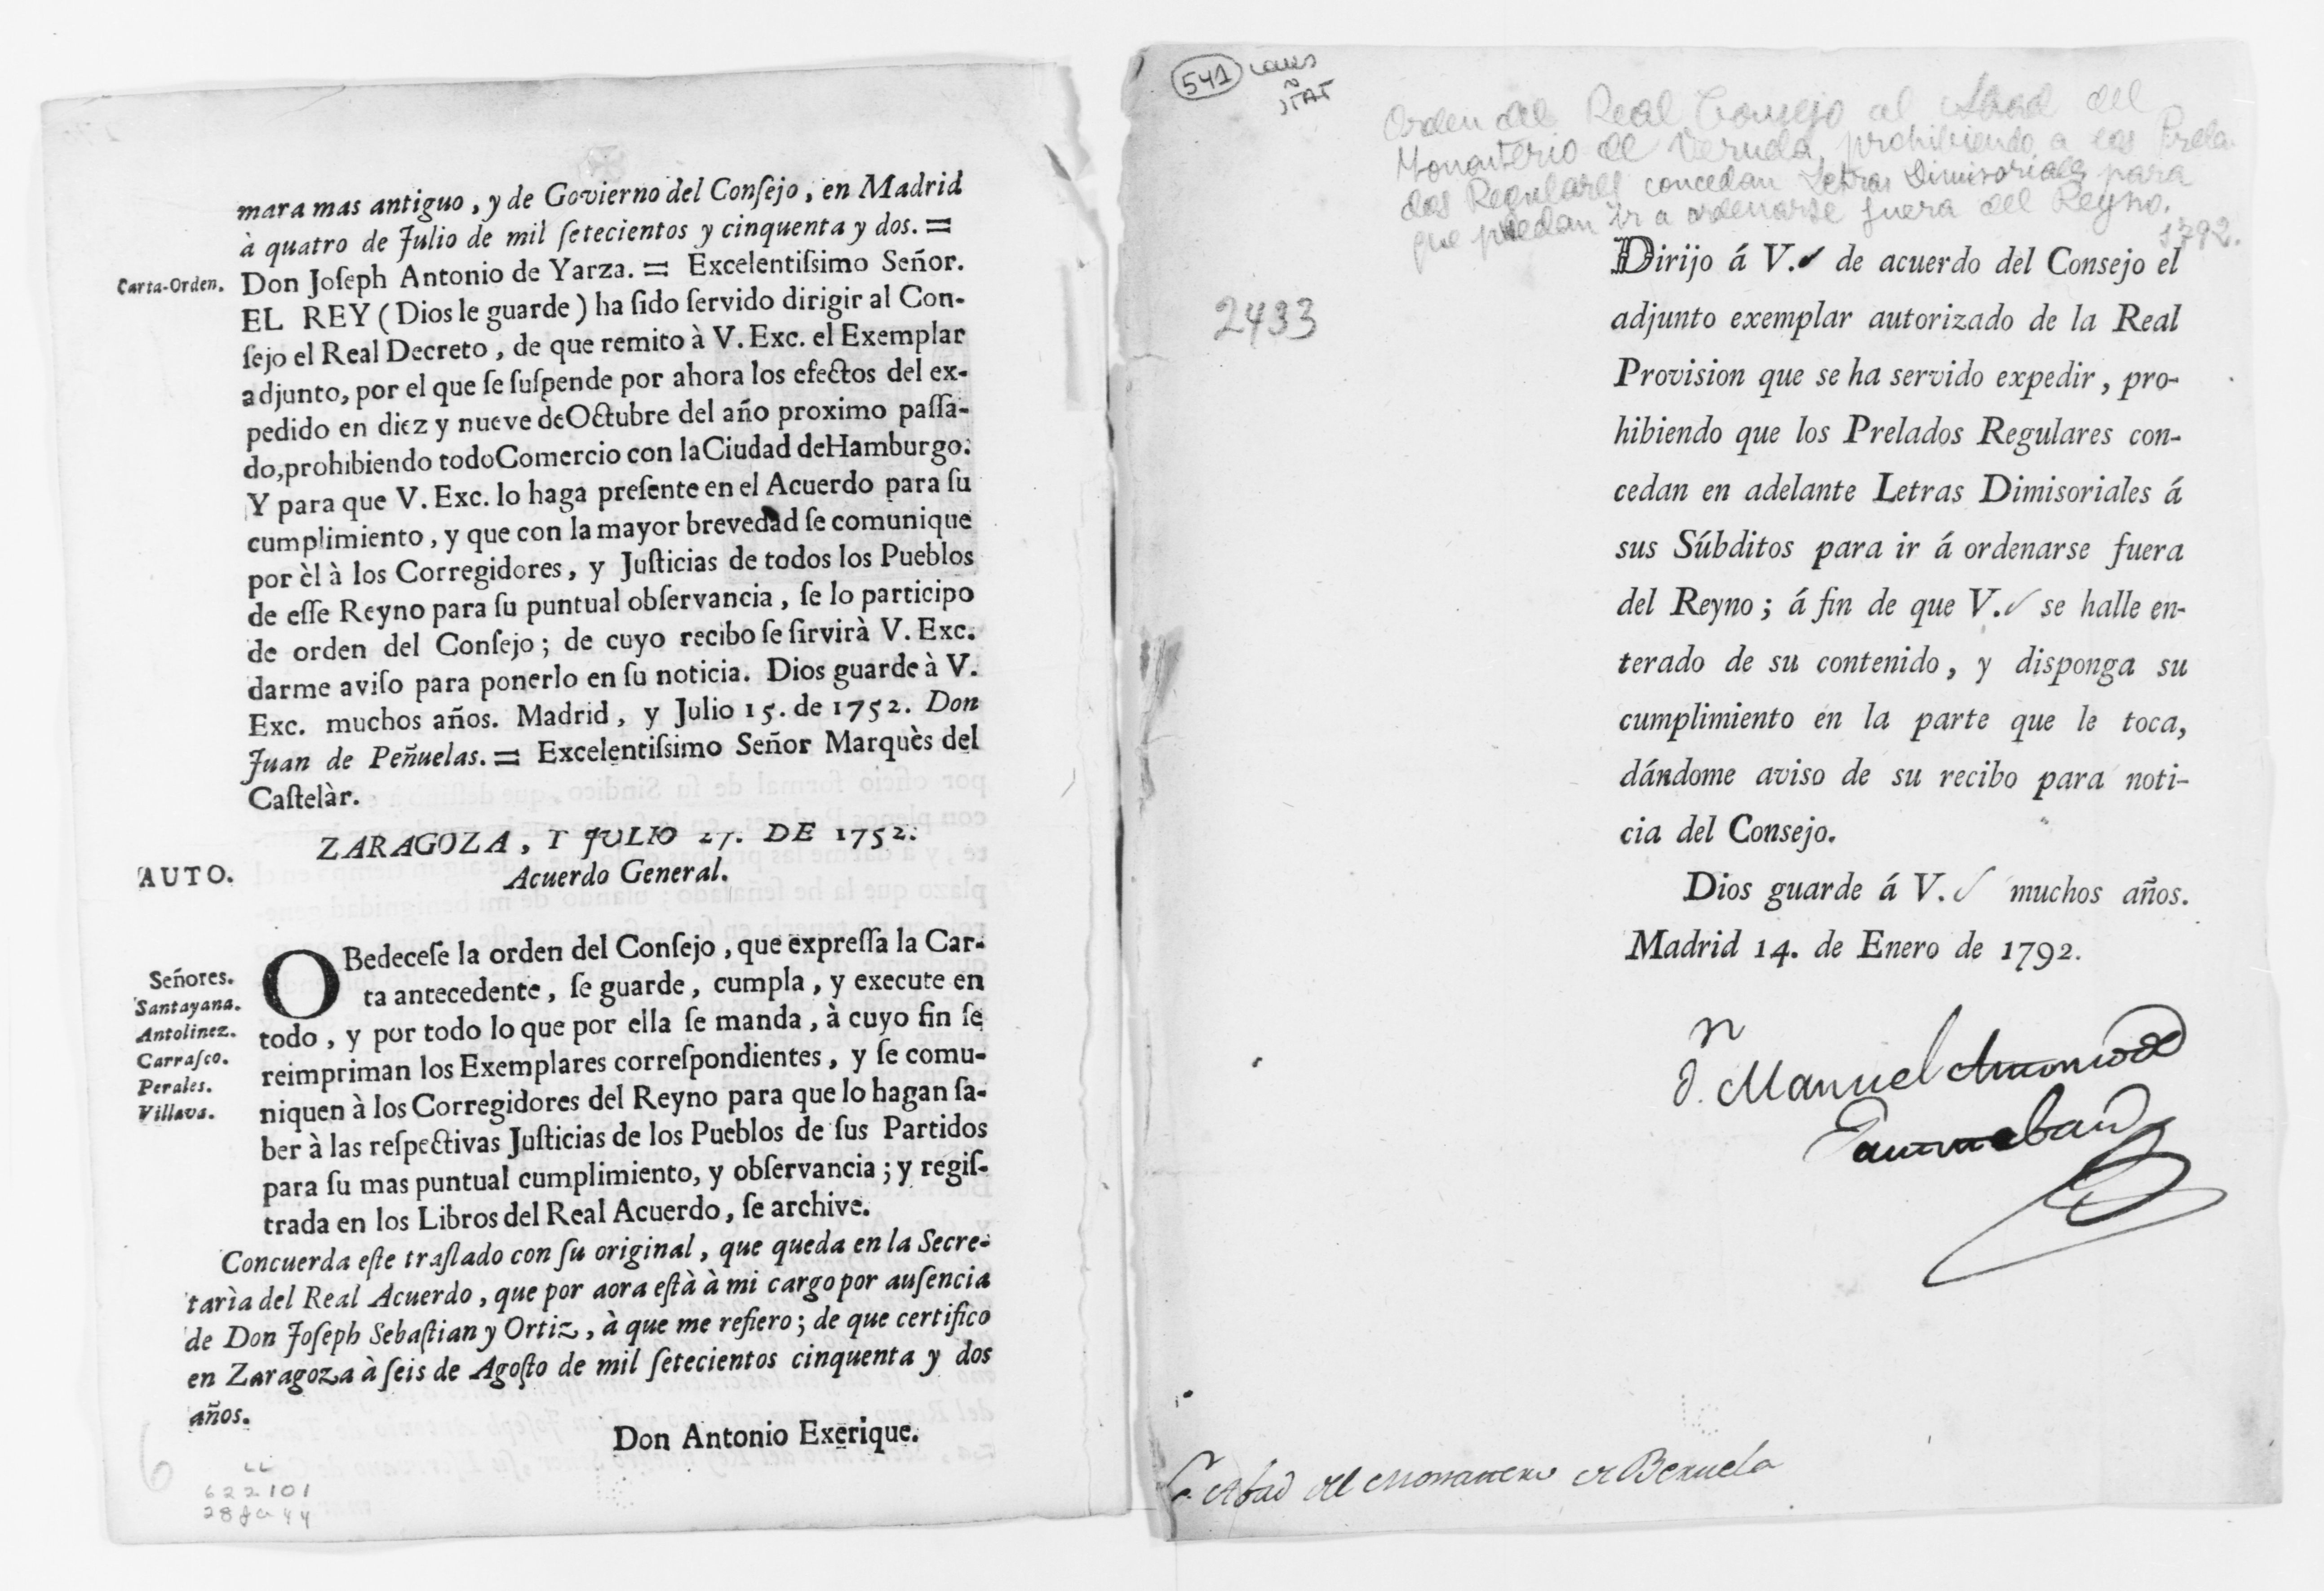 mara mas antiguo, y de Govierno del Conſejo, en Madrid
à quatro de Julio de mil ſetecientos y cinquenta y dos. =
Carta-Orden. Don Joſeph Antonio de Yarza. = Excelentiſsimo Señor.
EL REY (Dios le guarde) ha ſido ſervido dirigir al Con-
ſejo el Real Decreto, de que remito à V. Exc. el Exemplar
adjunto, por el que ſe ſuſpende por ahora los efectos del ex-
pedido en diez y nueve de Octubre del año proximo paſſa-
do, prohibiendo todo Comercio con la Ciudad de Hamburgo:
Y para que V. Exc. lo haga preſente en el Acuerdo para ſu
cumplimiento, y que con la mayor brevedad ſe comunique
por èl à los Corregidores, y Juſticias de todos los Pueblos
de eſſe Reyno para ſu puntual obſervancia, ſe lo participo
de orden del Conſejo; de cuyo recibo ſe ſirvirà V. Exc.
darme aviſo para ponerlo en ſu noticia. Dios guarde à V.
Exc. muchos años. Madrid, y Julio 15. de 1752. Don
Juan de Peñuelas. = Excelentiſsimo Señor Marquès del
Caſtelàr.
ZARAGOZA, Y JULIO 27. DE 1752.
AUTO. Acuerdo General.
Señores.
Santayana.
Antolinez.
Carraſco.
Perales.
Villava.
OBedeceſe la orden del Conſejo, que expreſſa la Car-
ta antecedente, ſe guarde, cumpla, y execute en
todo, y por todo lo que por ella ſe manda, à cuyo fin ſe
reimpriman los Exemplares correſpondientes, y ſe comu-
niquen à los Corregidores del Reyno para que lo hagan ſa-
ber à las reſpectivas Juſticias de los Pueblos de ſus Partidos
para ſu mas puntual cumplimiento, y obſervancia; y regiſ-
trada en los Libros del Real Acuerdo, ſe archive.
Concuerda eſte traſlado con ſu original, que queda en la Secre-
tarìa del Real Acuerdo, que por aora eſtà à mi cargo por auſencia
de Don Joſeph Sebaſtian y Ortiz, à que me refiero; de que certifico
en Zaragoza à ſeis de Agoſto de mil ſetecientos cinquenta y dos
años.
Don Antonio Exerique.
6
LL
622101
28 Ja 44
541
Orden del Real Consejo al Abad del
Monasterio de Veruela, prohibiendo a los Prela-
dos Regulares concedan Letras Dimisoriales para
que puedan ir a ordenarse fuera del Reyno.
1792.
2433
Dirijo á V. de acuerdo del Consejo el
adjunto exemplar autorizado de la Real
Provision que se ha servido expedir, pro-
hibiendo que los Prelados Regulares con-
cedan en adelante Letras Dimisoriales á
sus Súbditos para ir á ordenarse fuera
del Reyno; á fin de que V. se halle en-
terado de su contenido, y disponga su
cumplimiento en la parte que le toca,
dándome aviso de su recibo para noti-
cia del Consejo.
Dios guarde á V. muchos años.
Madrid 14. de Enero de 1792.
Dn. Manuel Antonio de
Santisteban
Sr. Abad del Monasterio de Beruela